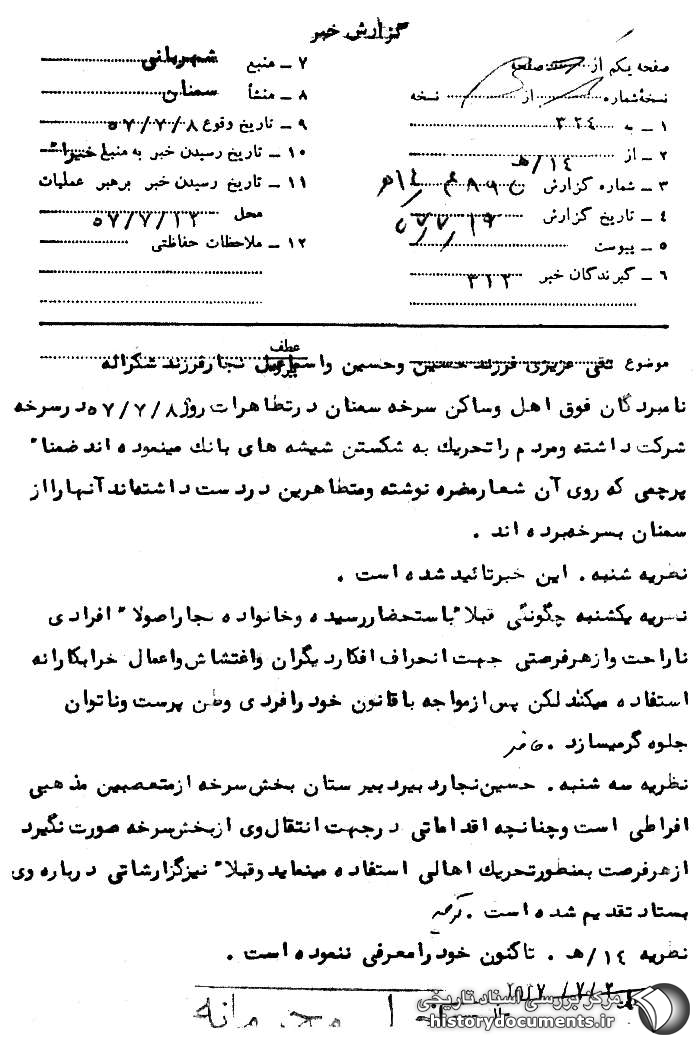 گزارش خبر
صفحه یکم از صفحه
نسخه شماره از نسخه
۱ ـ به ۳۲۴
۲ ـ از ۱۴/هـ
۳ ـ شماره گزارش
۴ ـ تاریخ گزارش
۵ ـ پیوست
۶ ـ گیرندگان خبر ۳۱۲
۷ ـ منبع شهربانی
۸ ـ منشأ سمنان
۹ ـ تاریخ وقوع ۵۷/۷/۸
۱۰ ـ تاریخ رسیدن خبر به منبع
۱۱ ـ تاریخ رسیدن خبر برهبر عملیات
محل ۵۷/۷/۱۲
۱۲ ـ ملاحظات حفاظتی
عطف
پیرو
موضوع تقی عزیزی فرزند حسین وحسین واسماعیل نجارفرزند شکراله
نامبردگان فوق اهل وساکن سرخه سمنان درتظاهرات روز ۵۷/۷/۸ درسرخه
شرکت داشته ومردم راتحریك به شکستن شیشه های بانك مینموده اند ضمنا"
پرچمی که روی آن شعارمضره نوشته ومتظاهرین دردست داشته‌اند آنهارااز
سمنان بسرخه‌برده اند .
نظریه شنبه . این خبرتائید شده است .
نظریه یکشنبه چگونگی قبلا" باستحضاررسیده وخانواده نجاراصولا" افرادی
ناراحت وازهرفرصتی جهت انحراف افکاردیگران واغتشاش واعمال خرابکارانه
استفاده میکند لکن پس ازمواجه باقانون خودرافردی وطن پرست وناتوان
جلوه گرمیسازد .
نظریه سه شنبه . حسین نجاردبیردبیرستان بخش سرخه ازمتعصبین مذهبی
افراطی است وچنانچه اقداماتی درجهت انتقال وی ازبخش سرخه صورت نگیرد
ازهرفرصت بمنظورتحریك اهالی استفاده مینماید وقبلا" نیزگزارشاتی درباره وی
بستاد تقدیم شده است .
نظریه ۱۴/هـ . تاکنون خودرامعرفی ننموده است .
محرمانه
مرکز بررسی اسناد تاریخی
historydocuments.ir